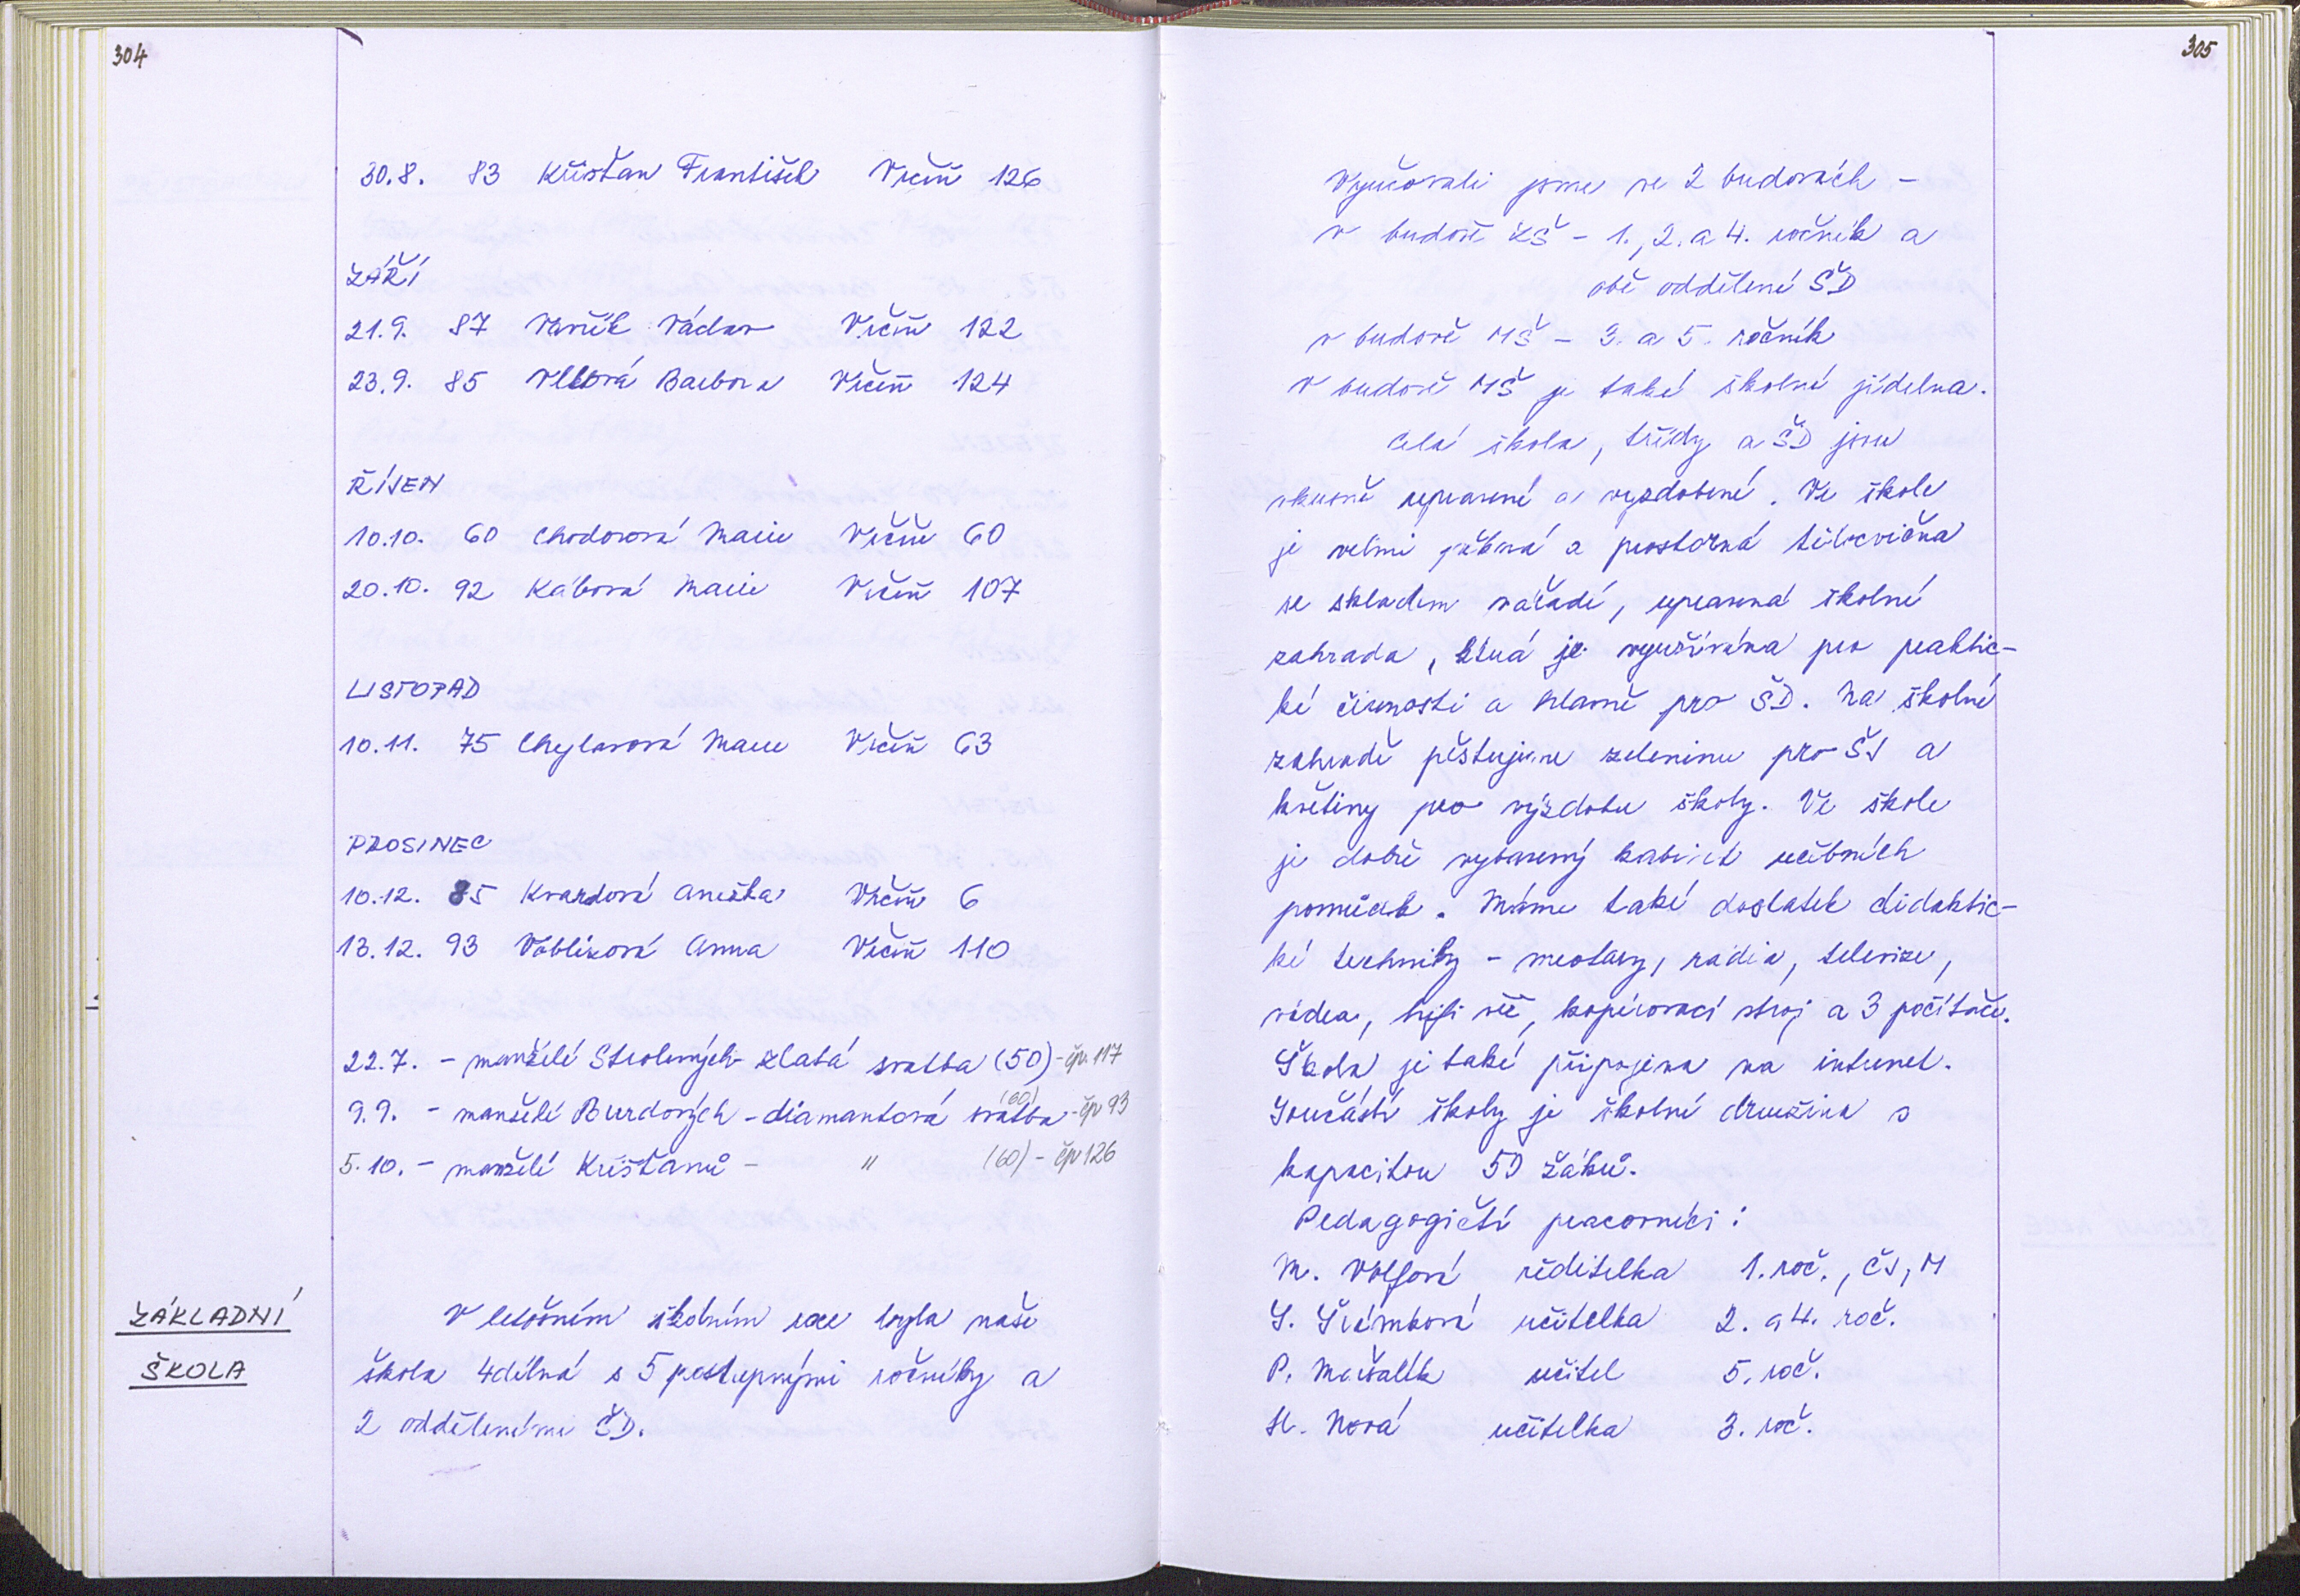 304
30.8. 83 Křišťan František Vrčeň 126
ZÁŘÍ
21.9. 87 Vaník Václav Vrčeň 122
23.9. 85 Vlková Barbora Vrčeň 124
ŘÍJEN
10.10. 60 Chodorová Marie Vrčeň 60
20.10. 92 Kábová Marie Vrčeň 107
LISTOPAD
10.11. 75 Chejlavová Marie Vrčeň 63
PROSINEC
10.12. 85 Kvardová Anežka Vrčeň 6
13.12. 93 Voblizová Anna Vrčeň 110
22.7. - manželé Strolených - zlatá svatba (50) - čp. 117
9.9. - manželé Burdových - diamantová svatba (60) - čp 93
5.10. - manželé Křišťanů - " (60) - čp 126
ZÁKLADNÍ
ŠKOLA
V letošním školním roce byla naše
škola 4dílná s 5 postupnými ročníky a
2 odděleními ŠD.
305
Vyučovali jsme ve 2 budovách -
v budově ZŠ - 1., 2. a 4. ročník a
obě oddělení ŠD
v budově MŠ - 3. a 5. ročník
V budově MŠ je také školní jídelna.
Celá škola, třídy a ŠD jsou
vkusně upravené a vyzdobené. Ve škole
je velmi pěkná a prostorná tělocvična
se skladem nářadí, upravená školní
zahrada, která je využívána pro praktic-
ké činnosti a hlavně pro ŠD. Na školní
zahradě pěstujeme zeleninu pro ŠJ a
květiny pro výzdobu školy. Ve škole
je dobře vybavený kabinet učebních
pomůcek. Máme také dostatek didaktic-
ké techniky - meotary, rádia, televize,
videa, hifi věž, kopírovací stroj a 3 počítače.
Škola je také připojena na internet.
Součástí školy je školní družina s
kapacitou 50 žáků.
Pedagogičtí pracovníci:
M. Volfová ředitelka 1. roč., ČJ, M
J. Šrámková učitelka 2. a 4. roč.
P. Maršalík učitel 5. roč.
H. Nová učitelka 3. roč.